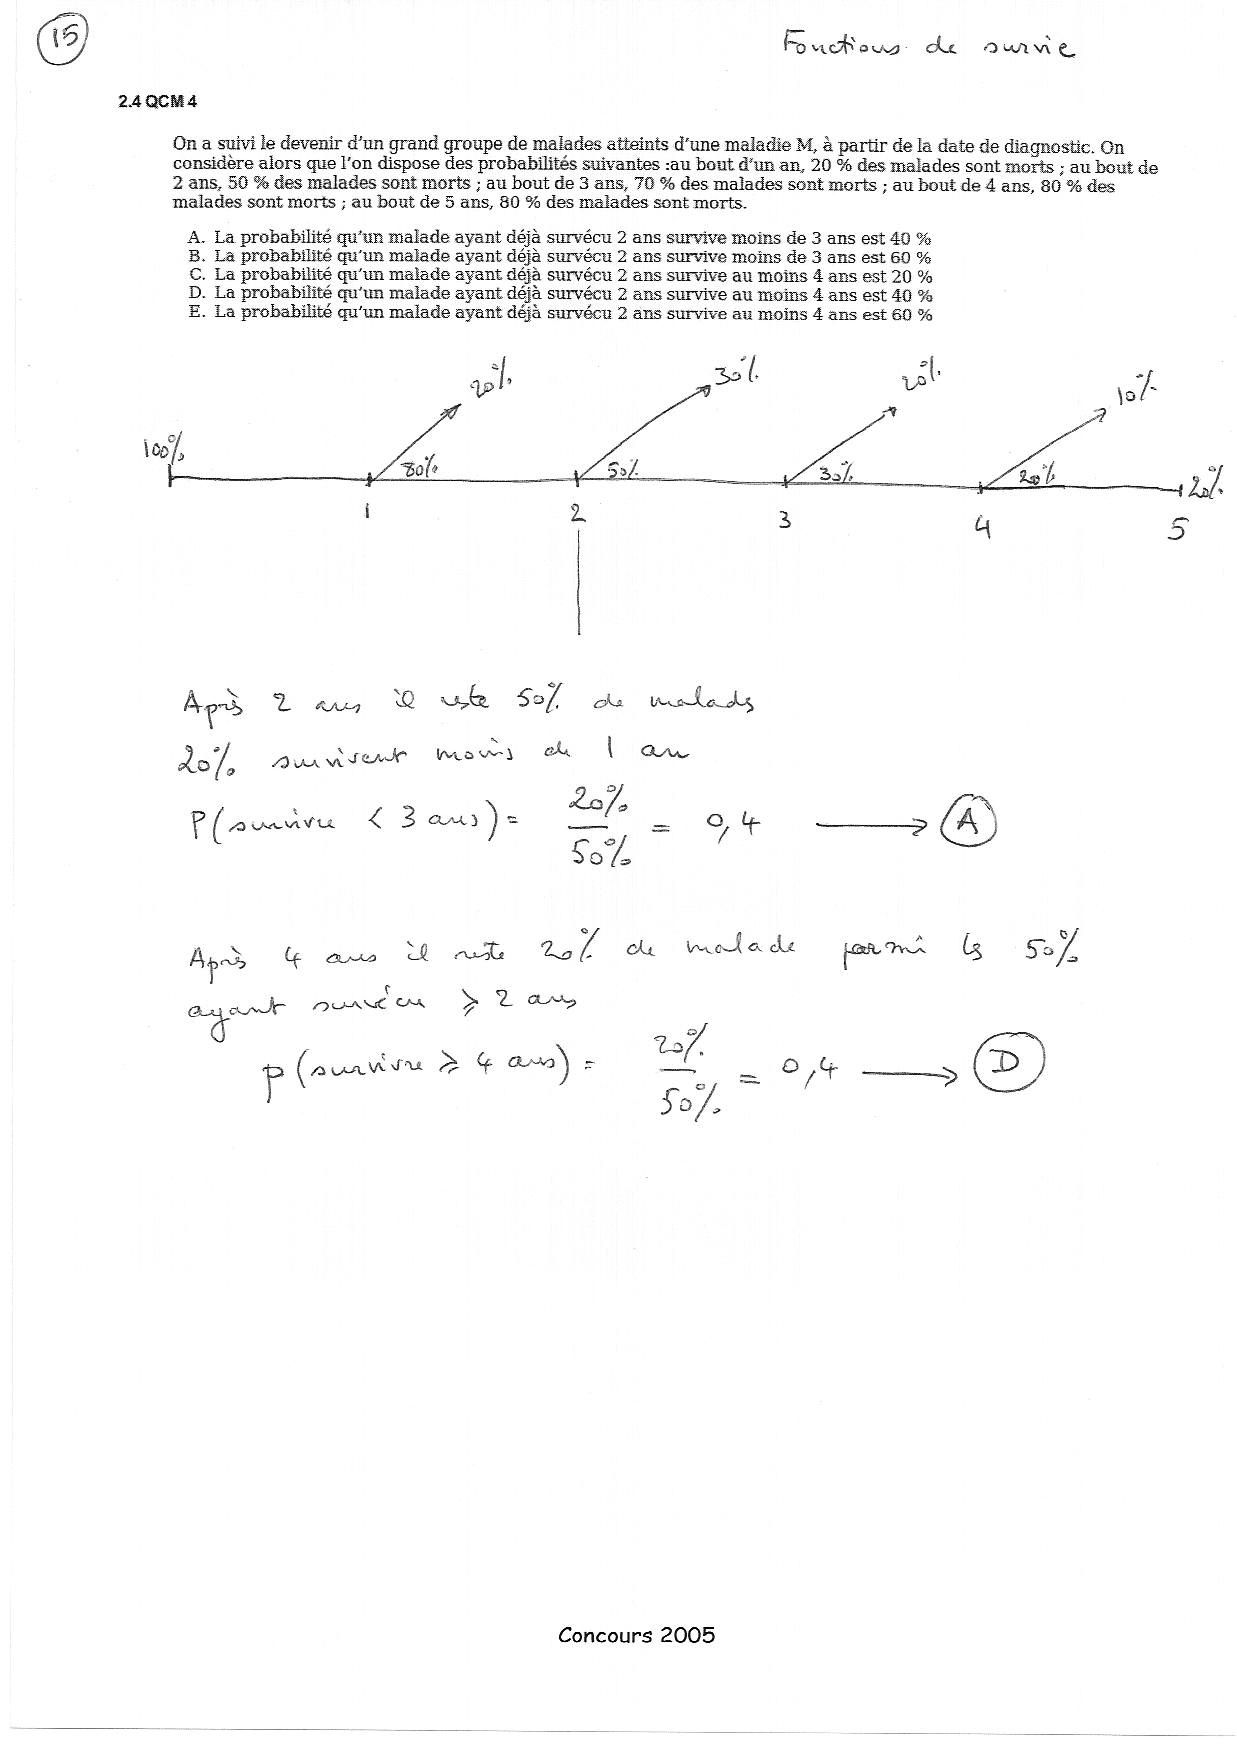 15
Fonctions de survie
2.4 QCM 4
On a suivi le devenir d'un grand groupe de malades atteints d'une maladie M, à partir de la date de diagnostic. On
considère alors que l'on dispose des probabilités suivantes :au bout d'un an, 20 % des malades sont morts ; au bout de
2 ans, 50 % des malades sont morts ; au bout de 3 ans, 70 % des malades sont morts ; au bout de 4 ans, 80 % des
malades sont morts ; au bout de 5 ans, 80 % des malades sont morts.
A. La probabilité qu'un malade ayant déjà survécu 2 ans survive moins de 3 ans est 40 %
B. La probabilité qu'un malade ayant déjà survécu 2 ans survive moins de 3 ans est 60 %
C. La probabilité qu'un malade ayant déjà survécu 2 ans survive au moins 4 ans est 20 %
D. La probabilité qu'un malade ayant déjà survécu 2 ans survive au moins 4 ans est 40 %
E. La probabilité qu'un malade ayant déjà survécu 2 ans survive au moins 4 ans est 60 %
20% 30% 20% 10%
100% 80% 50% 30% 20% 20%
1 2 3 4 5
Après 2 ans il reste 50% de malads
20% survivent moins de 1 an
P(survivre < 3 ans) = 20% / 50% = 0,4 → A
Après 4 ans il reste 20% de malade parmi ls 50%
ayant survécu ⩾ 2 ans
p(survivre ⩾ 4 ans) = 20% / 50% = 0,4 → D
Concours 2005